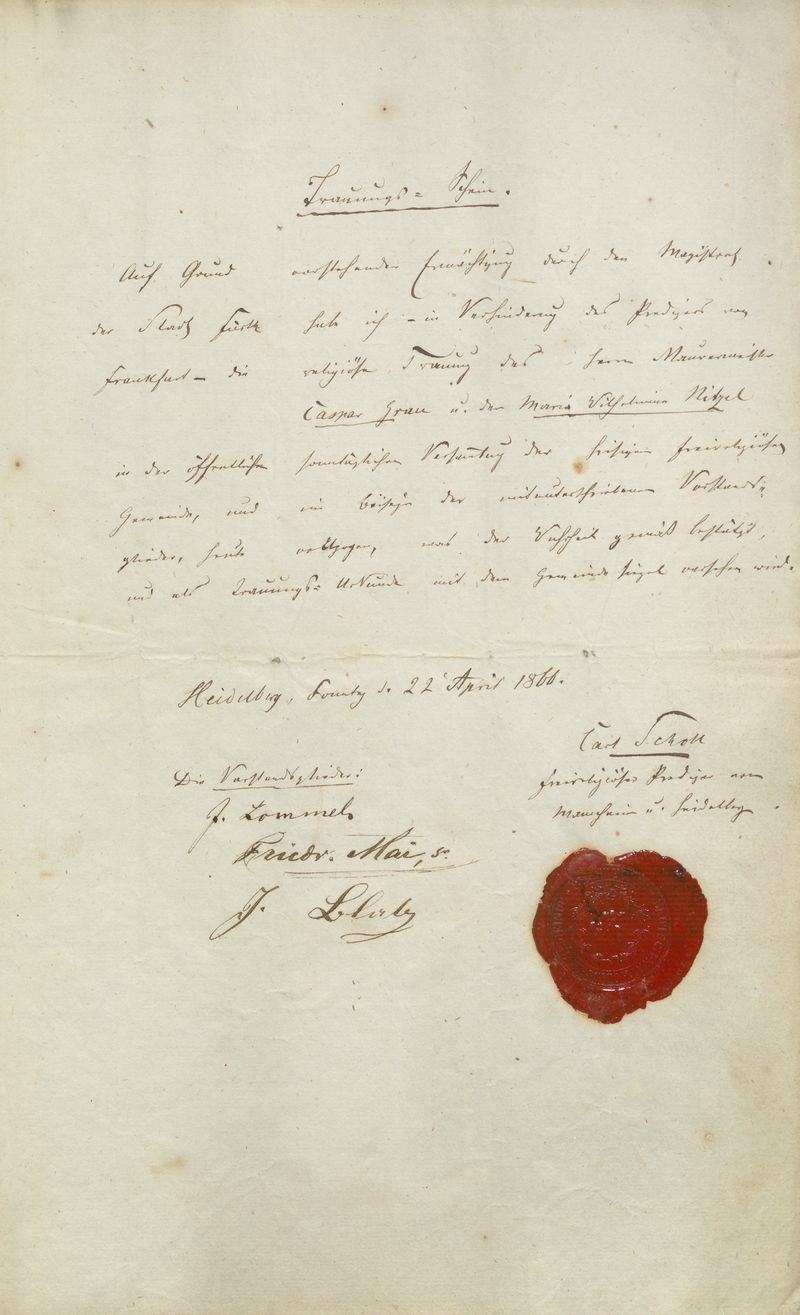 Trauungs=Schein.
Auf Grund vorstehender Ermächtigung durch den Magistrat
der Stadt Fürth habe ich – in Verhinderung des Predigers von
Frankfurt – die religiöse Trauung des Herrn Maurermeister
Caspar Grau u. der Maria Wilhelmina Nitzel
in der öffentlichen sonntäglichen Versammlung der hiesigen freireligiösen
Gemeinde, und im Beisein der mitunterschriebenen Vorstands=
glieder, heute vollzogen, was der Wahrheit gemäß bestätigt,
und als Trauungs=Urkunde mit dem Gemeindesiegel versehen wird.
Heidelberg, Sonntag d. 22 April 1866.
Carl Scholl
freireligiöser Prediger von
Mannheim u. Heidelberg.
Die Vorstandsglieder:
J. Lommel
Friedr. Mai, sr.
J. Blatz